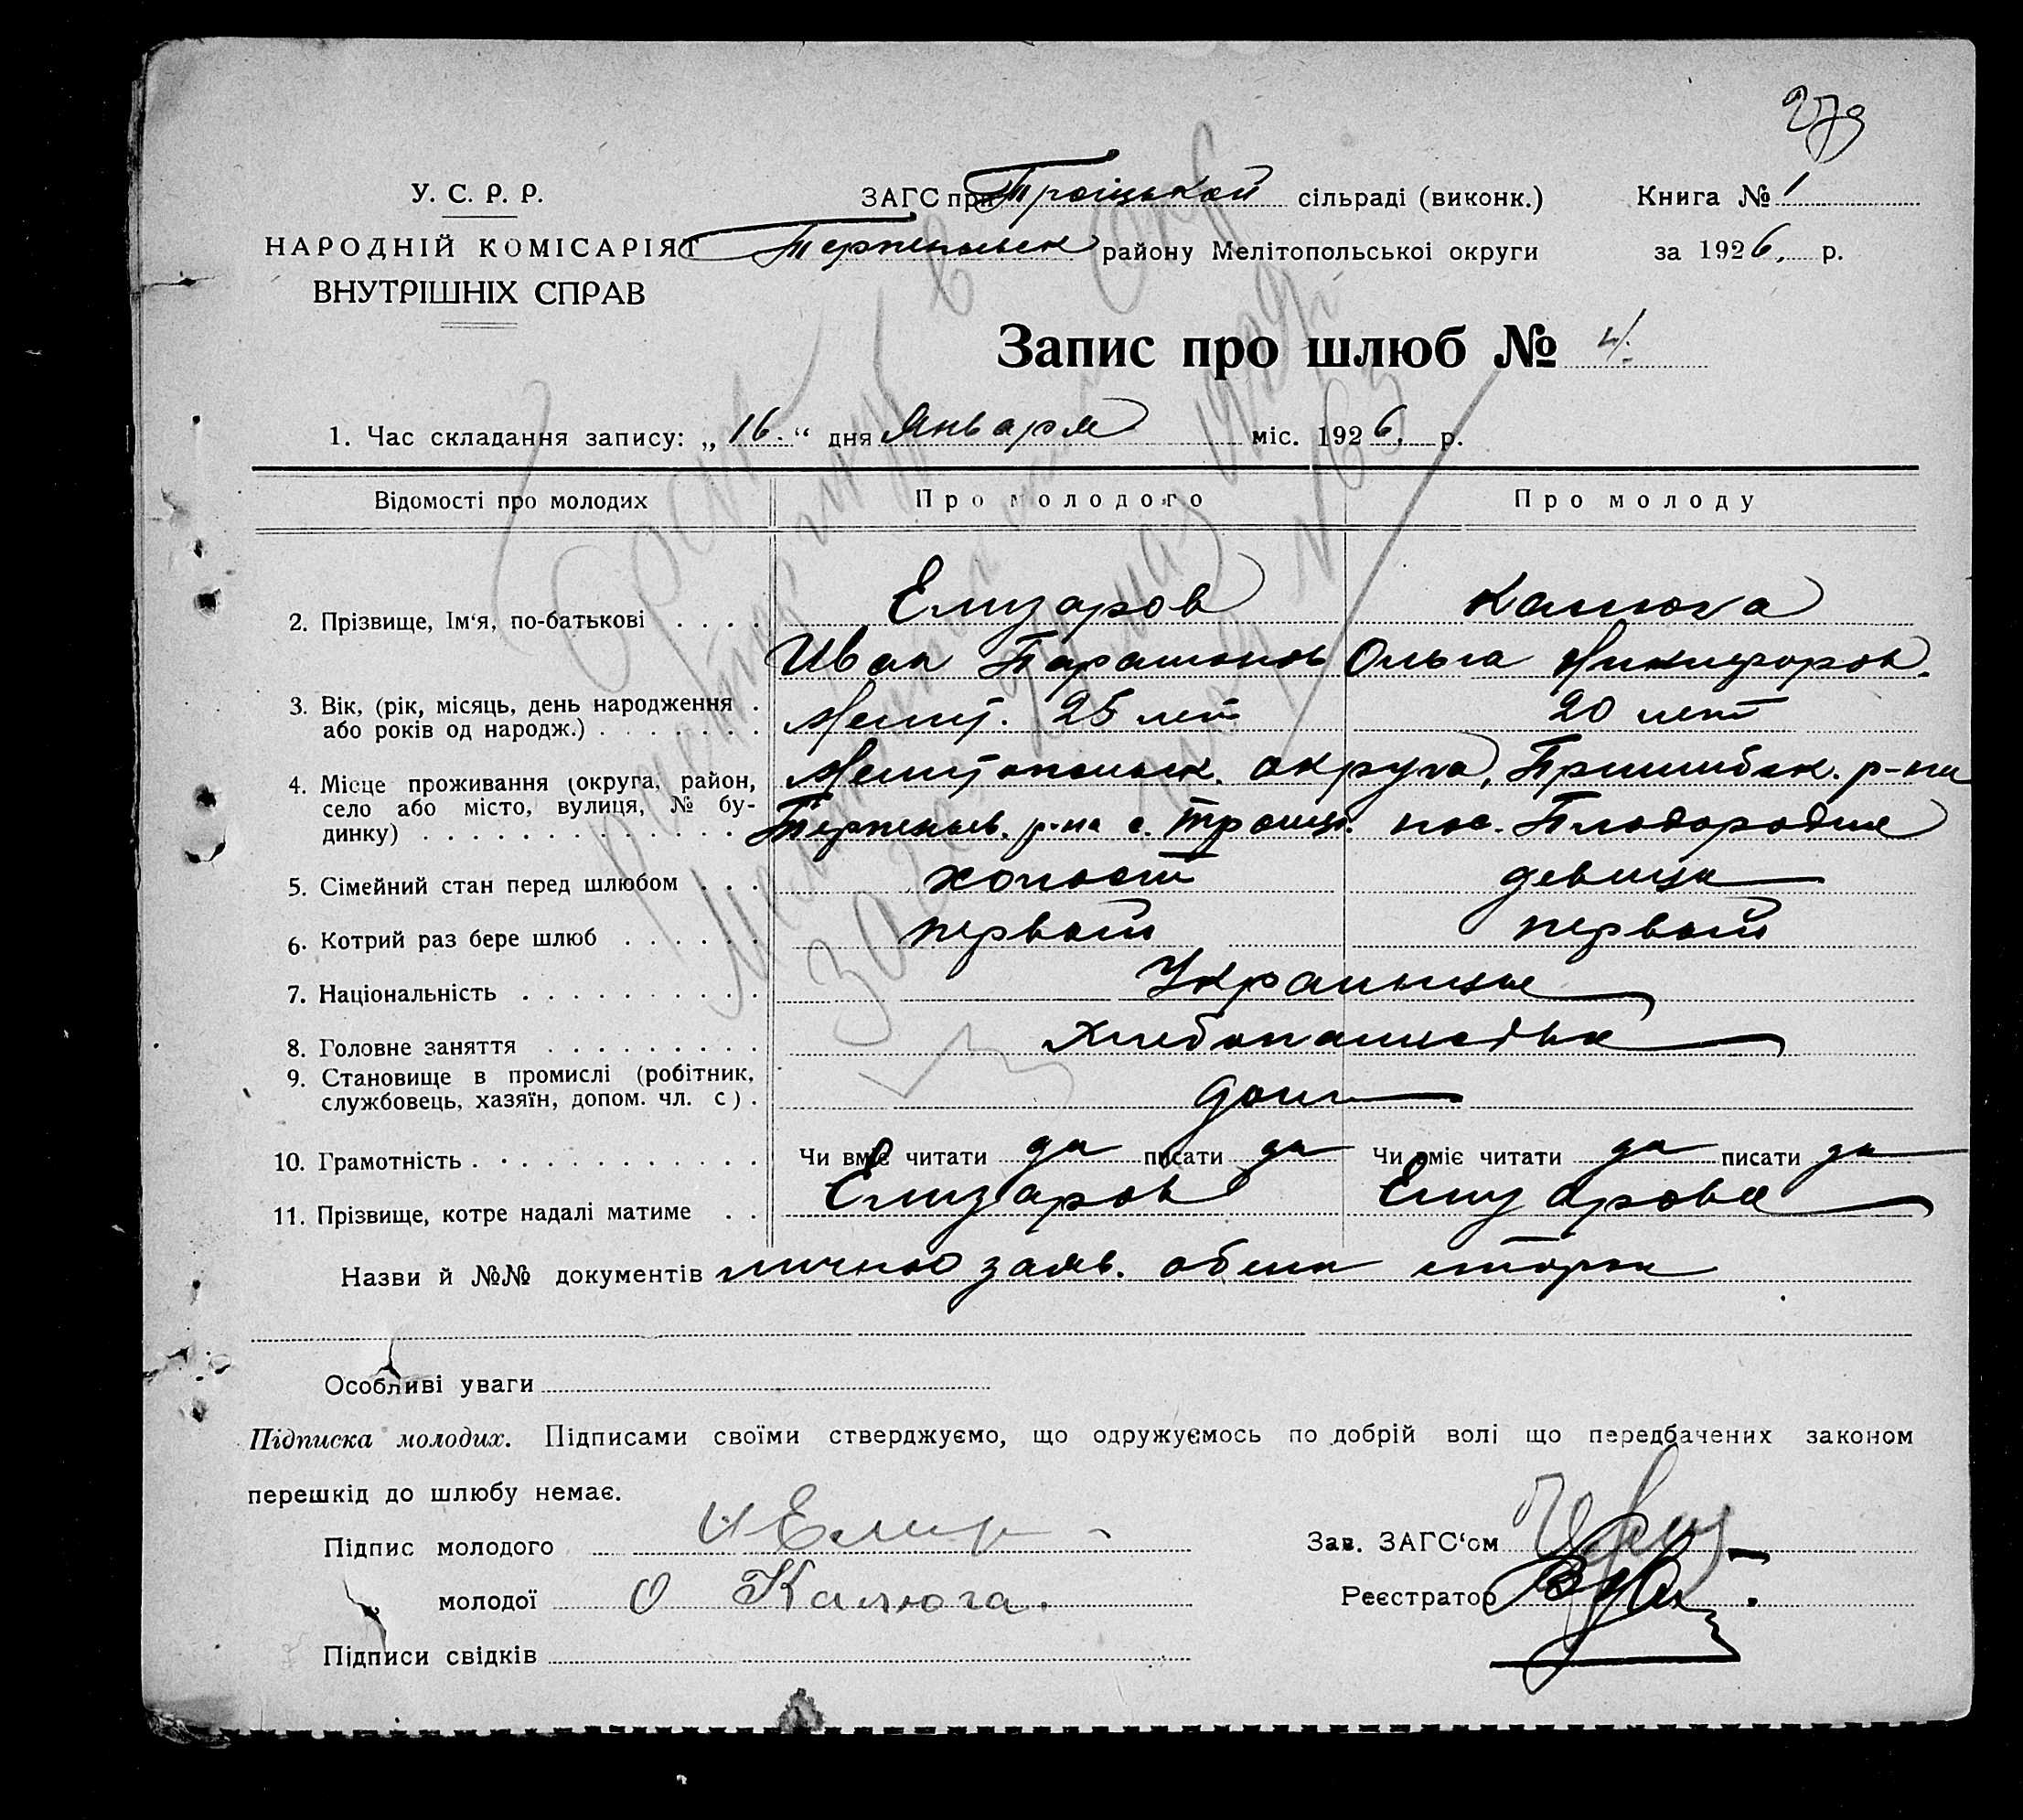 279
У. С. Р. Р.
НАРОДНІЙ КОМІСАРІЯТ
ВНУТРІШНІХ СПРАВ
ЗАГС при Троіцькой сільраді (виконк.)
Терпеньевск району Мелітопольської округи
Книга № 1
за 1926. р.
Запис про шлюб № 4.
1. Час складання запису: „16.“ дня Января міс. 1926. р.
Відомості про молодих Про молодого Про молоду
2. Прізвище, Ім‘я, по-батькові . . . . Елизаров Калюга
Иван Парамонов Ольга Никифоров.
3. Вік, (рік, місяць, день народження .
або років од народж.) . . . . . . . 25 лет 20 лет
4. Місце проживання (округа, район,
село або місто, вулиця, № бу-
динку) . . . . . . . . . . . . .
Мелитопольск. округа, Пришибск. р-на
Терпеньев. р-на с. Троицк. пос. Плодородие
5. Сімейний стан перед шлюбом . . . холост девица
6. Котрий раз бере шлюб . . . . . . первый первый
7. Національність . . . . . . . . . . Украинцы
8. Головне заняття . . . . . . . . . Хлебопашество
9. Становище в промислі (робітник,
службовець, хазяїн, допом. чл. с) .
10. Грамотність . . . . . . . . . . . . Чи вміє читати да писати да Чи вміє читати да писати да
11. Прізвище, котре надалі матиме . . Елизаров Елизарова
Назви й №№ документів личною заяв. обеих сторон
Особливі уваги
Підписка молодих. Підписами своїми стверджуємо, що одружуємось по добрій волі що передбачених законом
перешкід до шлюбу немає.
Підпис молодого И Елиз
„ молодої О Калюга.
Підписи свідків
Зав. ЗАГС‘ом
Реєстратор